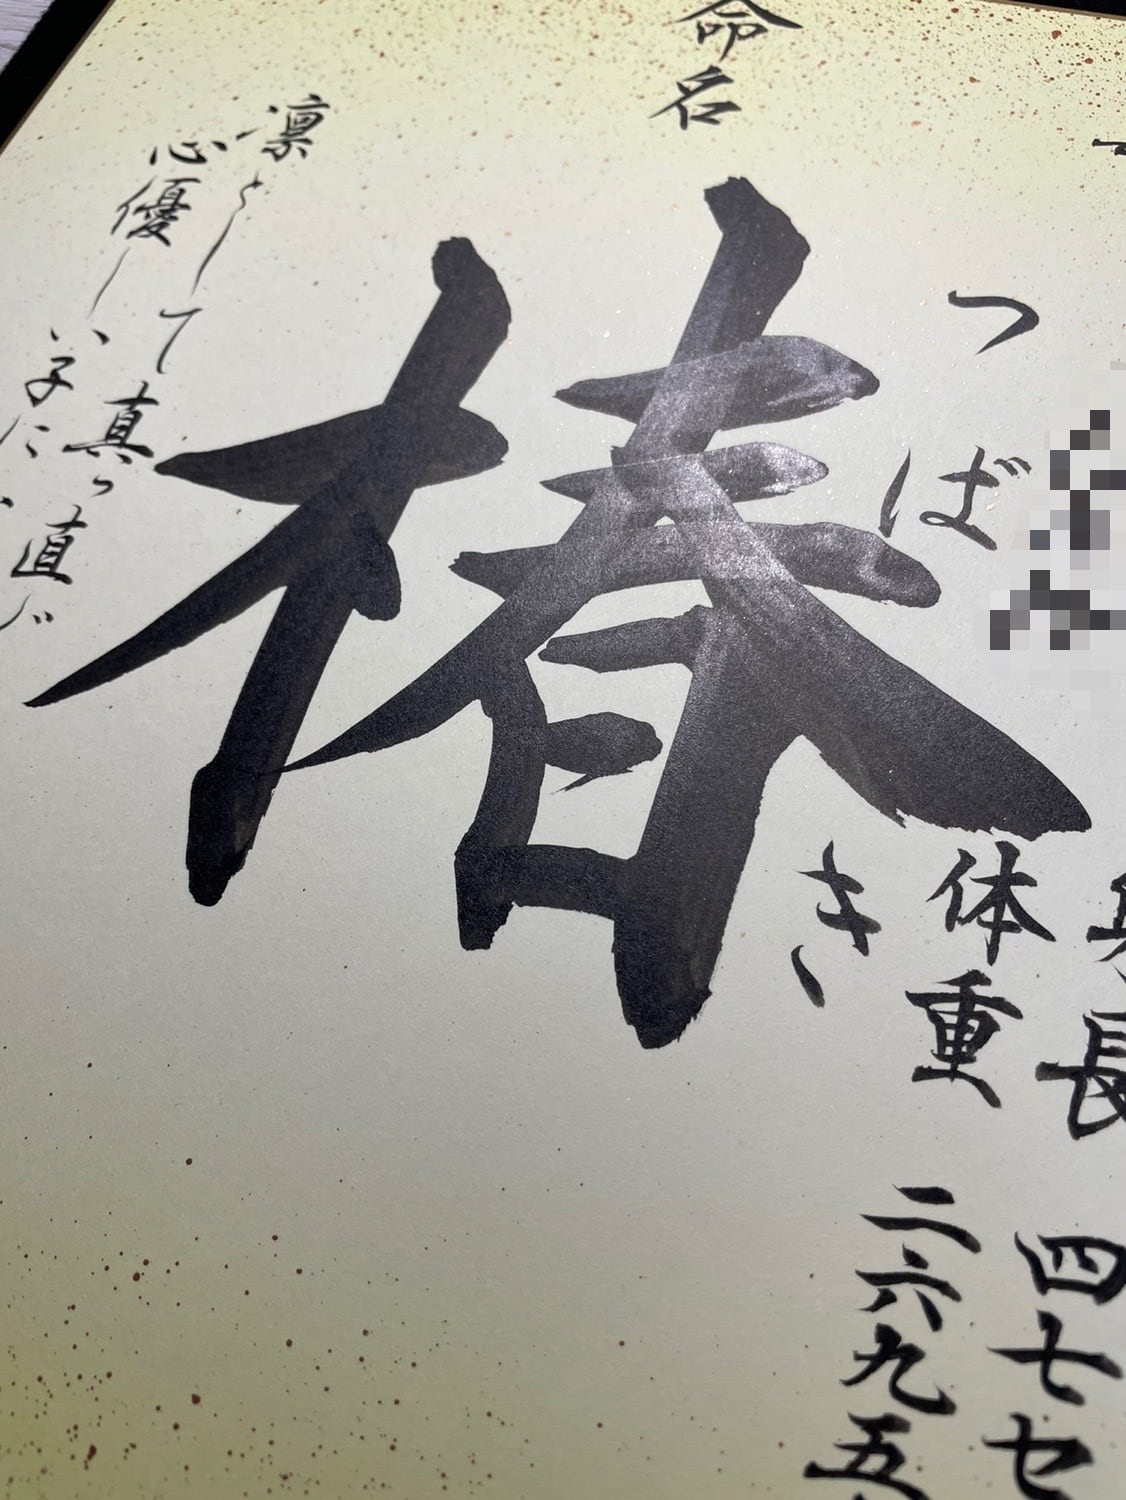 命名
椿
つばき
身長 四七セ
体重 二六九五
凛として真っ直
心優しい子に